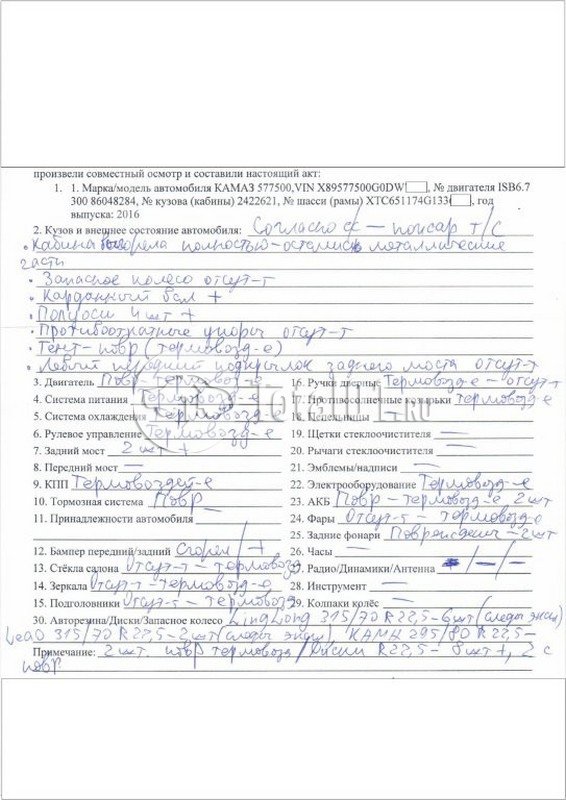 произвели совместный осмотр и составили настоящий акт:
1. 1. Марка/модель автомобиля КАМАЗ 577500,VIN X89577500G0DW, № двигателя ISB6.7
300 86048284, № кузова (кабины) 2422621, № шасси (рамы) XTC651174G133, год
выпуска: 2016
2. Кузов и внешнее состояние автомобиля: Согласно с/с – пожар т/с
• Кабина выгорела полностью-остались металлические
части
• Запасное колесо отсут-т
• Карданный вал +
• Полуоси 4 шт +
• Противооткатные упоры отсут-т
• Тент-повр (термовозд-е)
• Левый передний подкрылок заднего моста отсут-т
3. Двигатель Повр-термовозд-е
4. Система питания Термовозд-е
5. Система охлаждения Термовозд-е
6. Рулевое управление Термовозд-е
7. Задний мост 2 шт +
8. Передний мост —
9. КПП Термовоздей-е
10. Тормозная система Повр
11. Принадлежности автомобиля
12. Бампер передний/задний Сгорел / +
13. Стёкла салона Отсут-т -термовозд
14. Зеркала Отсут-т -термовозд-е
15. Подголовники Отсут-т - термовозд
16. Ручки дверные Термовозд-е – отсут-т
17. Противосолнечные козырьки Термовозд-е
18. Пепельницы —
19. Щетки стеклоочистителя —
20. Рычаги стеклоочистителя —
21. Эмблемы/надписи —
22. Электрооборудование Термовозд-е
23. АКБ Повр-термовозд-е 2 шт
24. Фары Отсут-т - термовозд-е
25. Задние фонари Повреждены-2шт
26. Часы —
27. Радио/Динамики/Антенна – / – / –
28. Инструмент —
29. Колпаки колёс —
30. Авторезина/Диски/Запасное колесо LingLong 315/70 R22,5-6шт (следы экспл)
Leao 315/70 R22,5-2шт (следы экспл), КАМА 295/80 R22,5-
Примечание: 2 шт. повр термовозд / Диски R22,5- 8 шт +, 2 с
повр
TOTAL01.RU